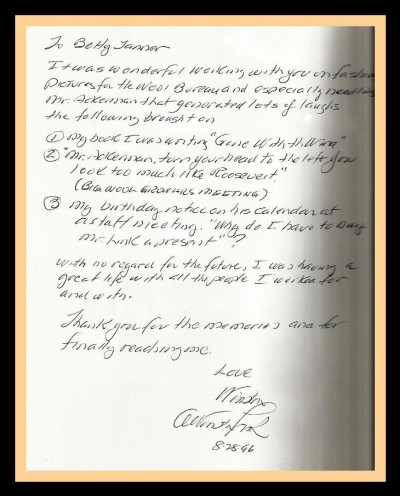 To Betty Tanner
It was wonderful working with you on fashion
pictures for the Wool Bureau and especially needling
Mr. Ackerman that generated lots of laughs
the following brought on
① my book I was writing "Gone With the Wind"
② "Mr. Ackerman, turn your head to the left, you
look too much like Roosevelt."
(Big Wool Growers Meeting)
③ my birthday notice on his calendar at
a staff meeting. "Why do I have to buy
Mr. Link a present"?
With no regard for the future, I was having a
great life with all the people I worked for
and with.
Thank you for the memories and for
finally reaching me.
Love
Winston
8-28-96